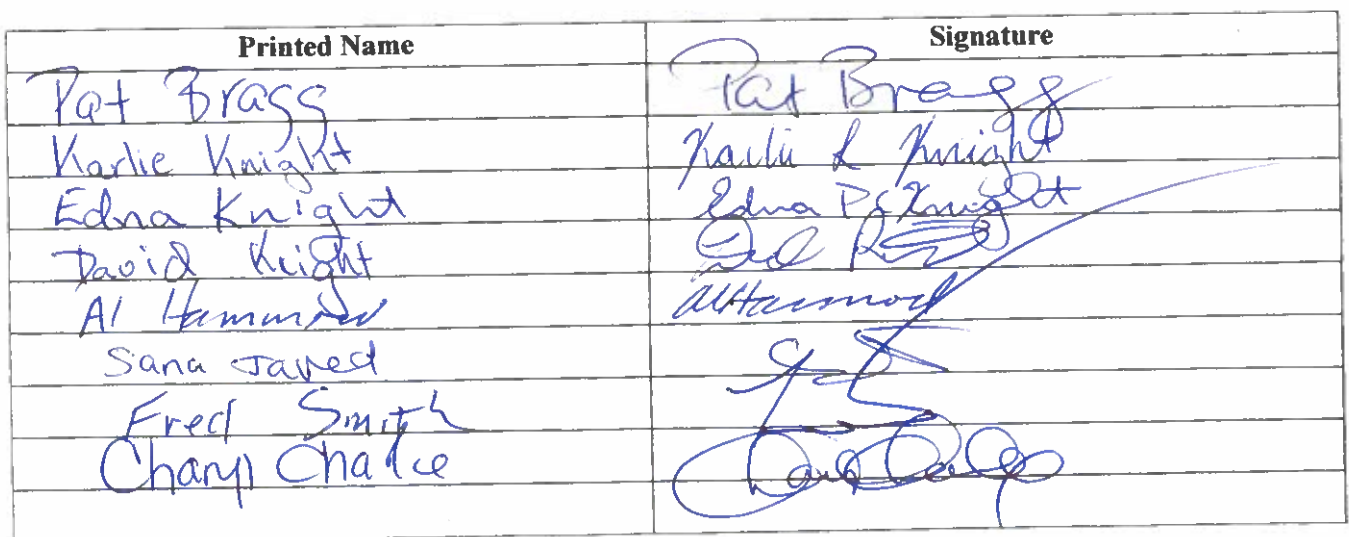 Printed Name Signature
Pat Bragg Pat Bragg
Karlie Knight Karlie L Knight
Edna Knight Edna P Knight
David Knight
Al Hammond Al Hammond
Sana Javed
Fred Smith
Charyl Chalce